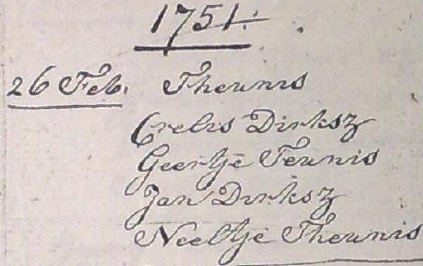 1751.
26 Feb. Theunis
Crelis Dirksz
Geertje Teunis
Jan Dirksz
Neeltje Theunis